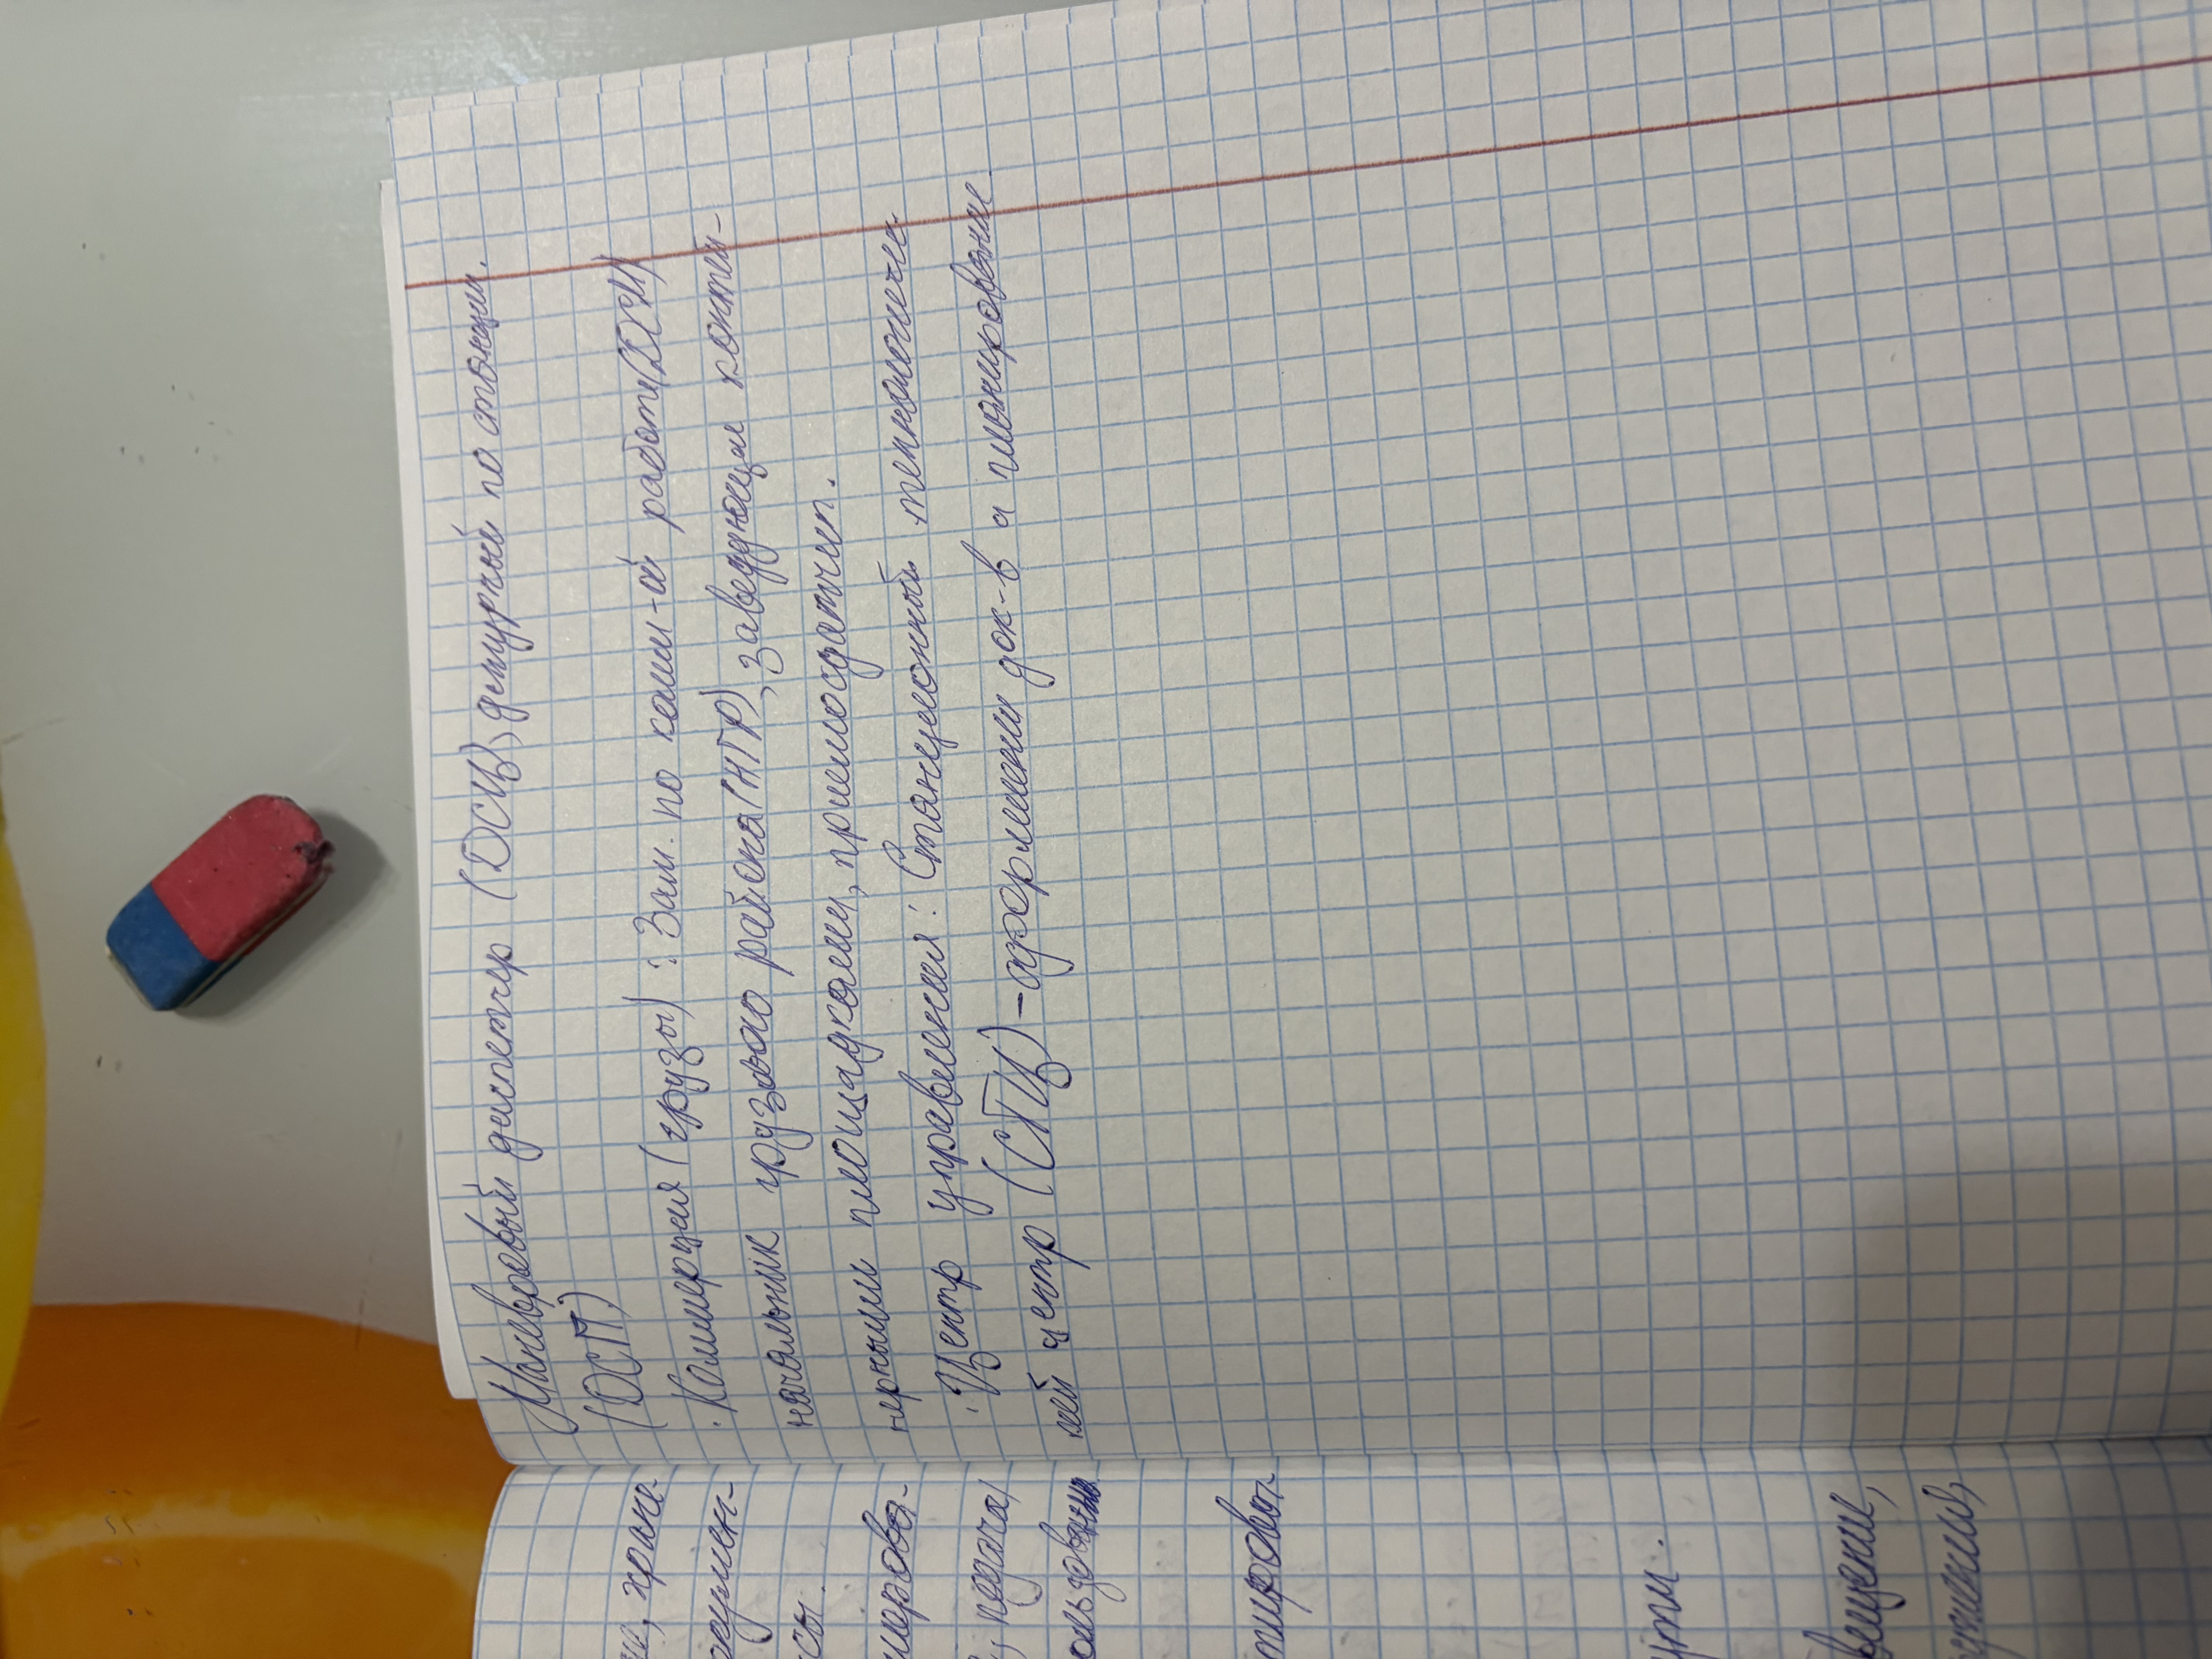 Маневровый диспетчер (ДСЦ), дежурный по станции.
(ДСП)
· Коммерция (грузы): Зам. по комм-ой работе (ДСМ)
начальник грузового района (НГР), заведующие контей-
нерными площадками, приемосдатчик.
· Центр управления: Станционный технологичес
кий центр (СТЦ) – оформлении док-в и планирование
, хране
сы.
, подача,
ользования
тирова
ути.
вещение,